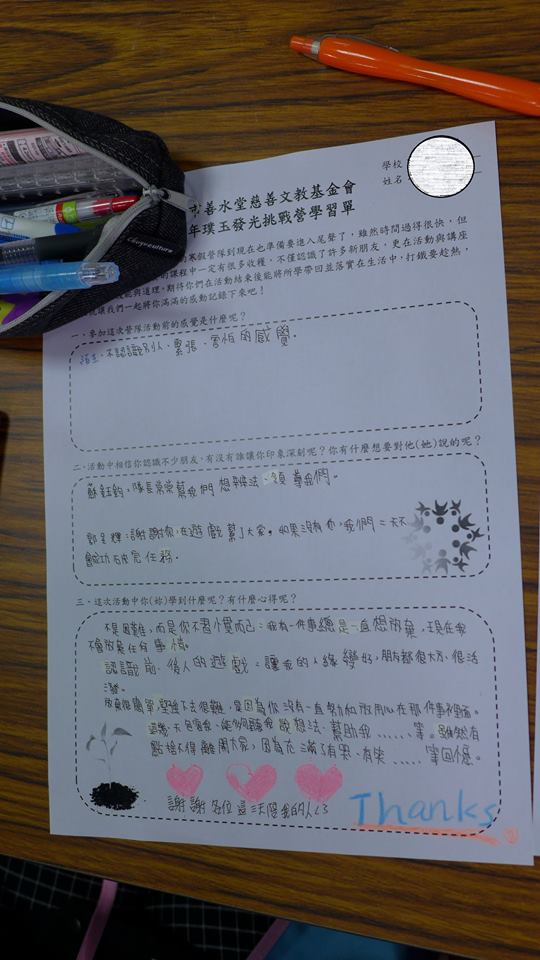 學校
姓名
善水堂慈善文教基金會
年璞玉發光挑戰營學習單
寒假營隊到現在也準備要進入尾聲了,雖然時間過得很快,但
的課程中一定有很多收穫,不僅認識了許多新朋友,更在活動與講座
能與道理,期待你們在活動結束後能將所學帶回並落實在生活中,打鐵要趁熱,
讓我們一起將你滿滿的感動記錄下來吧!
一、參加這次營隊活動前的感覺是什麼?
陌生、不認識別人、緊張、害怕的感覺。
二、活動中相信你認識不少朋友,有沒有誰讓你印象深刻呢?你有什麼想要對他(她)說的呢?
蘇鈺鈞:隊長常常幫我們想辦法、領導我們。
謝謝你,在遊戲幫了大家,如果沒有你,我們一定不
會成功破完任務。
三、這次活動中你(妳)學到什麼呢?有什麼心得呢?
不是困難,而是你不習慣而已:我有一件事總是一直想放棄,現在我
不會放棄任何事情。
認識前、後人的遊戲:讓我的人緣變好,朋友都很大方、很活
潑。
放棄很簡單,堅強下去很難,是因為你沒有一直努力和放用心在那件事裡面。
能夠聽我說想法、幫助我......等。雖然有
點捨不得離開大家,因為充滿了有哭、有笑......等回憶。
謝謝各位這三天陪我的人<3
Thanks